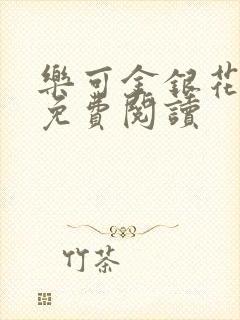 樂可金銀花
免費閱讀
竹茶